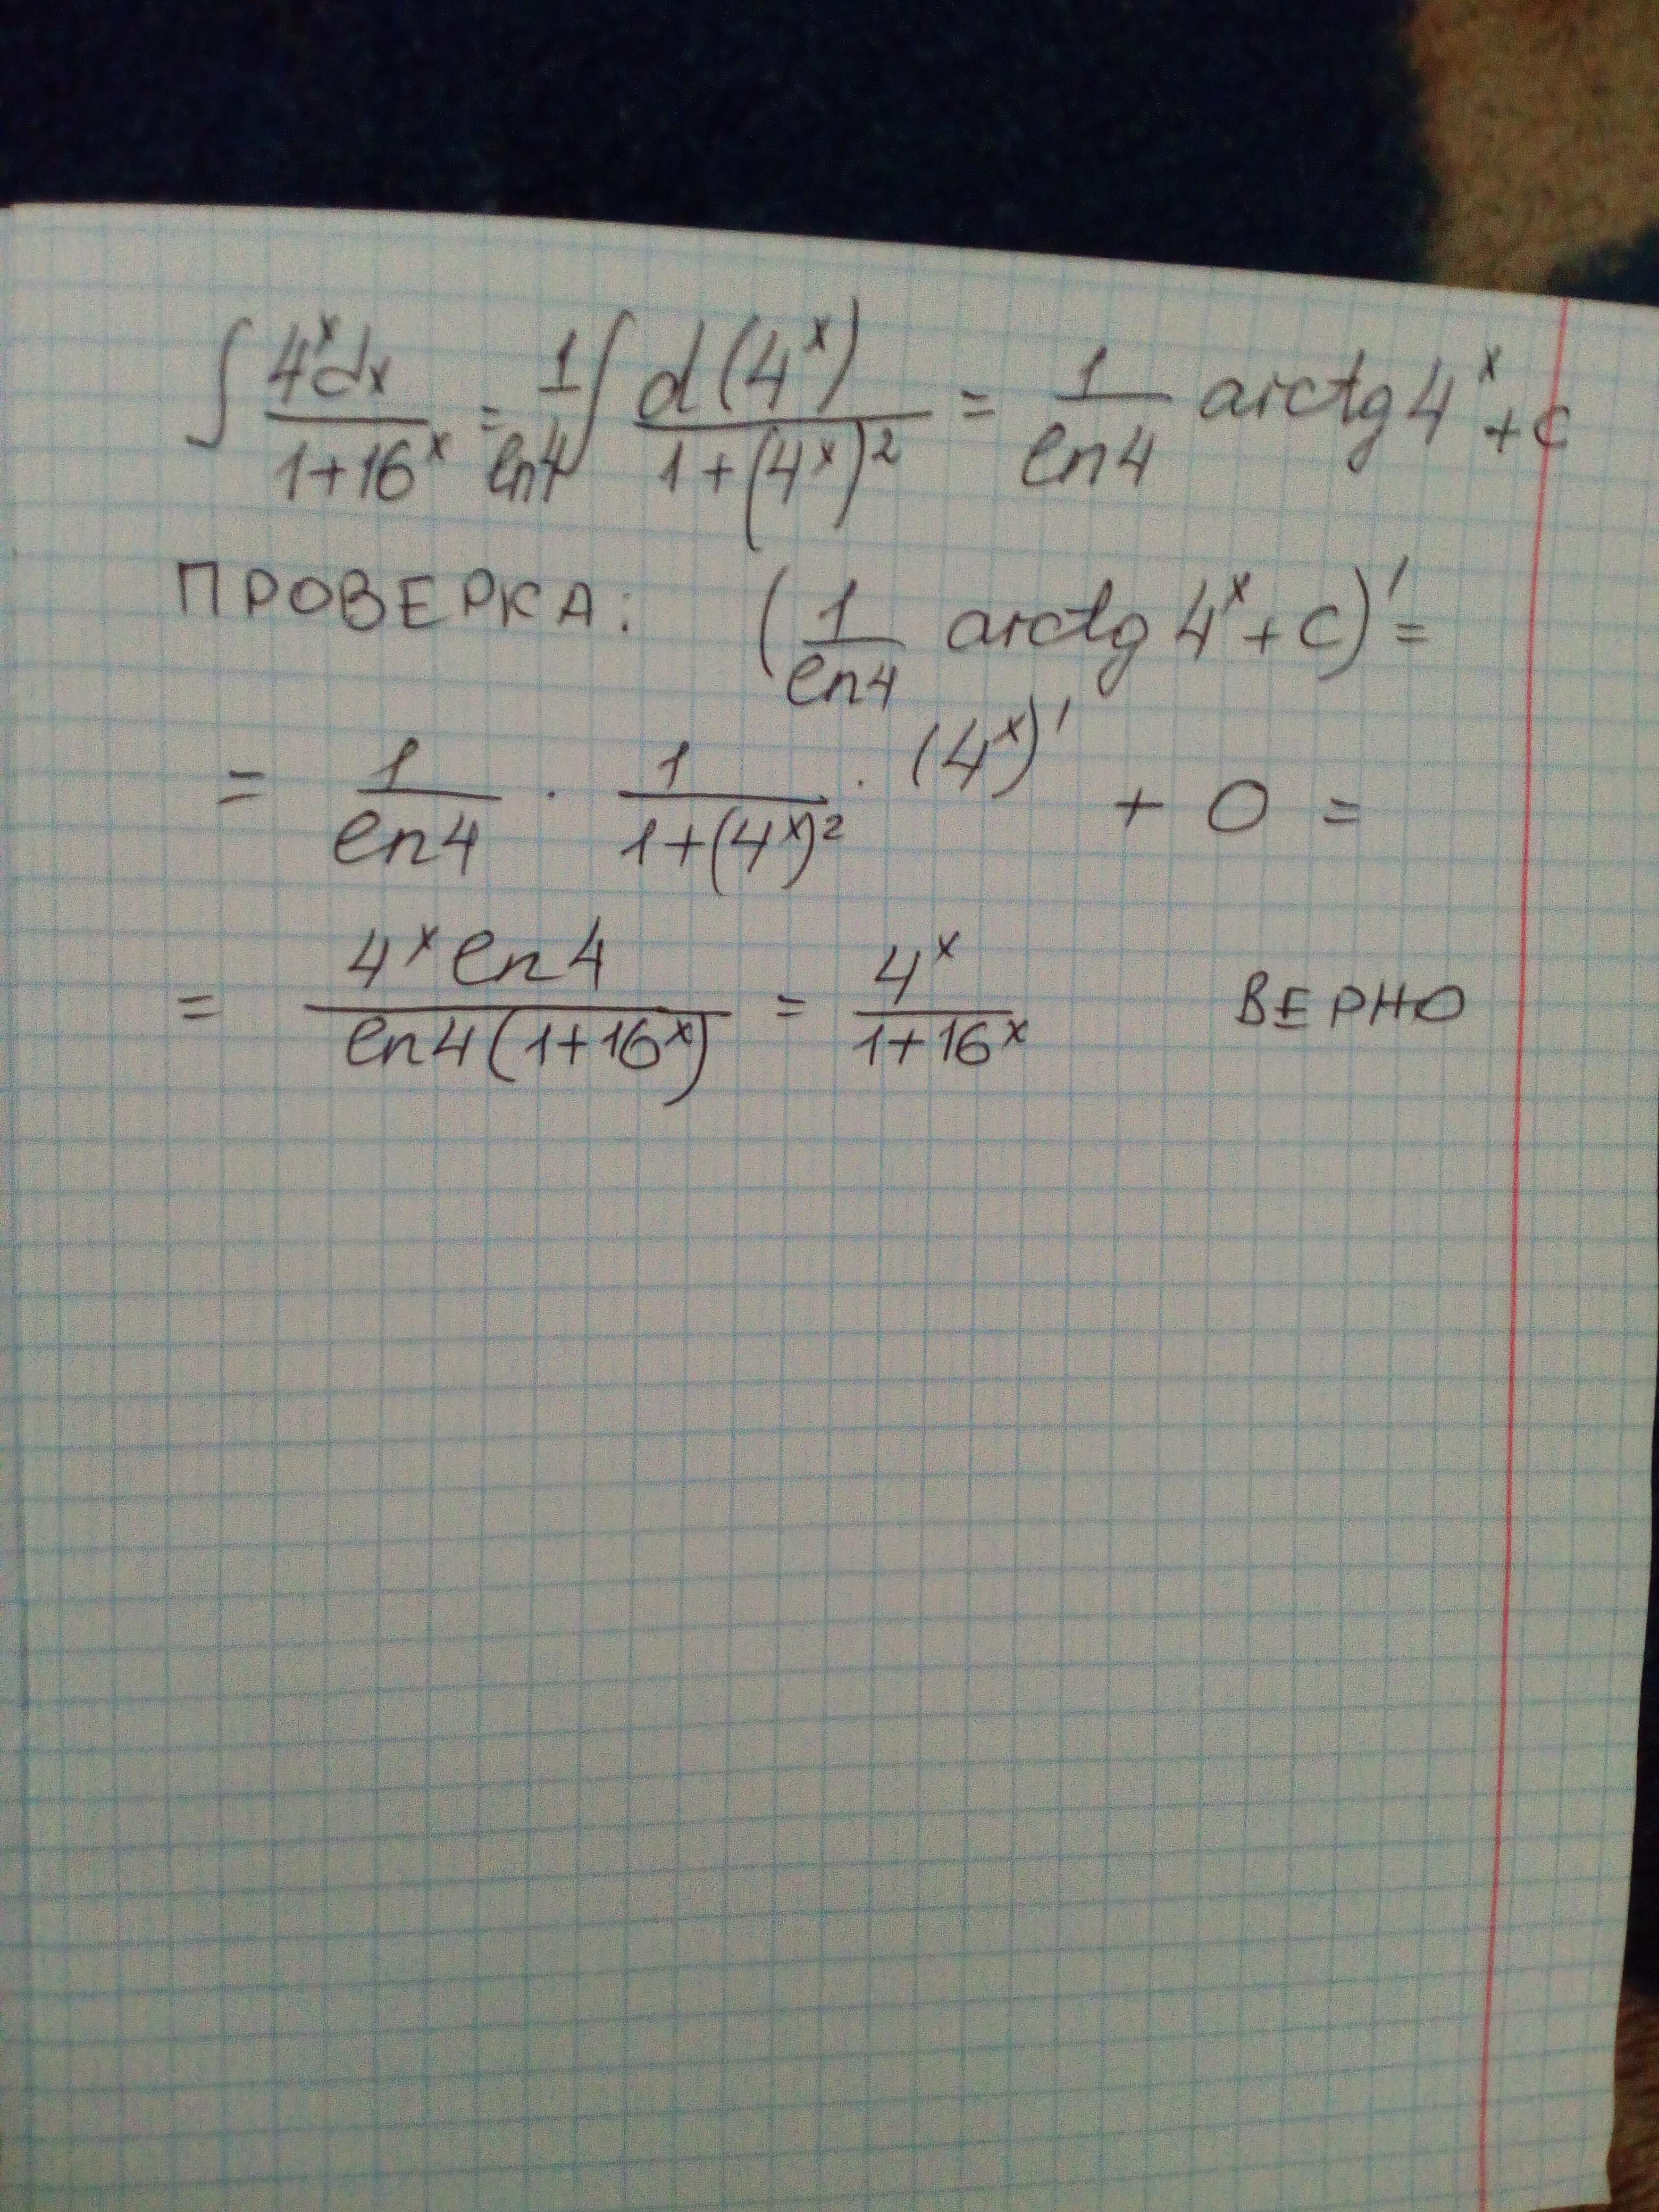 ∫ 4ˣdx / 1+16ˣ = 1/ln4 ∫ d(4ˣ) / 1+(4ˣ)² = 1/ln4 arctg 4ˣ + C
ПРОВЕРКА: (1/ln4 arctg 4ˣ + C)' =
= 1/ln4 · 1/1+(4ˣ)² · (4ˣ)' + 0 =
= 4ˣ ln4 / ln4(1+16ˣ) = 4ˣ / 1+16ˣ ВЕРНО